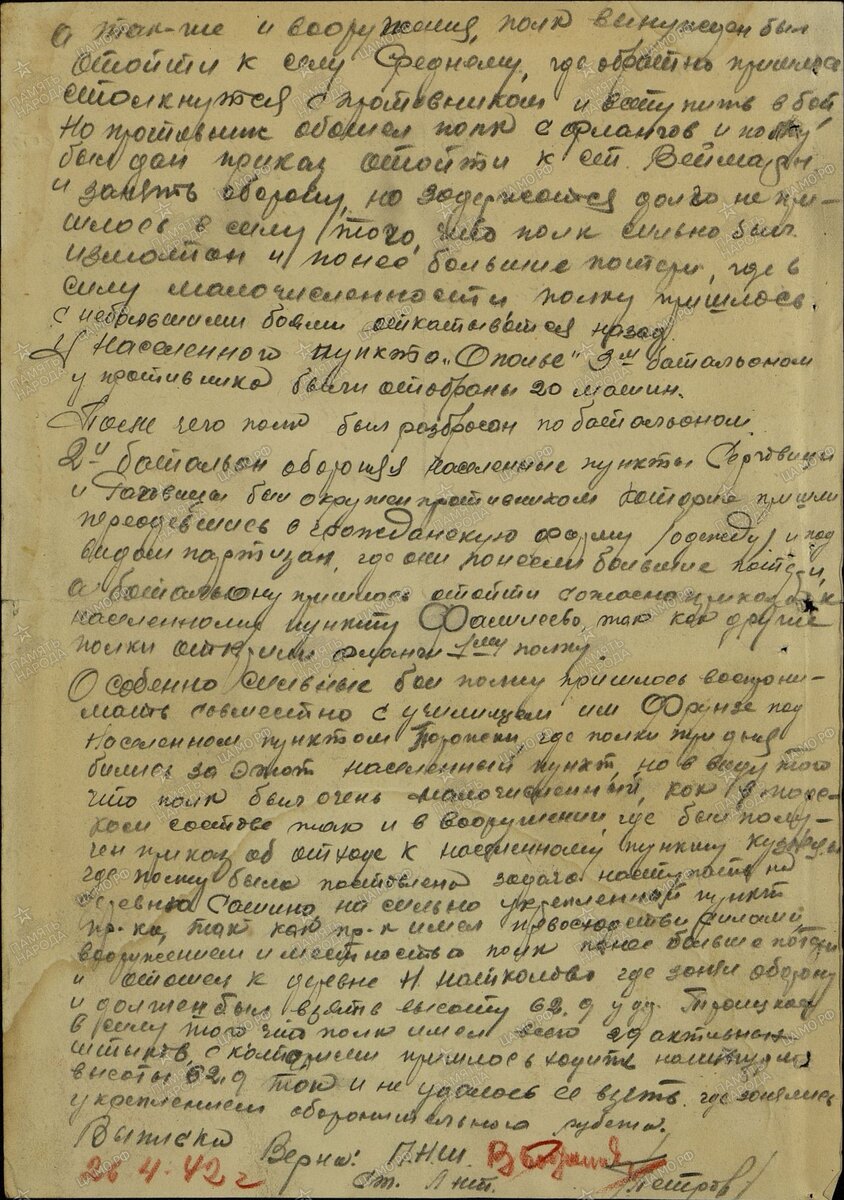 а так-же и вооружения, полк вынужден был
отойти к селу Среднему, где обратно пришлось
столкнутся с протовником и вступить в бой
Но противник обошел полк с флангов и полку
был дан приказ отойти к ст. Веймарн
и занять оборону, но задержатся долго не при-
шлось в силу того, что полк сильно был
измотан и понес большие потери, где в
силу малочисленности полку пришлось
с небольшими боями откатыватся назад.
У Населенного пункта "Ополье" 3им батальоном
у противника были отобраны 20 машин.
После чего полк был разбросан по батальоном.
2й батальон обороняя населенные пункты
и был окружен противником которые пришли
переодевшись в гражданскую форму (одежду) и под
видом партизан, где они понесли большие потери,
а батальону пришлось отойти согласно приказа к
населенному пункту так как другие
полки открыли фланги 1му полку.
Особенно сильные бои полку пришлось восприни-
мать совместно с училищем им Фрунзе под
населенном пунктом где полки три дня
бились за этот населенный пункт, но в виду того
что полк был очень малочисленный, как в людс-
ком составе так и в вооружении, где был полу-
чен приказ об отходе к населенному пункту
где полку была поставлена задача наступать на
деревню Сашино на сильно укрепленный пункт
пр-ка, так как пр-к имел превосходство силами,
вооружением и местностью полк понес большие потери
и отошел к деревне где занял оборону
и должен был взять высоту 62.9 у дер. Троицкая
в силу того что полк имел всего активных
штыков, с которыми пришлось ходить на
высоты 62.9 так и не удалось ее взять, где занялись
укреплением оборонительного рубежа.
Выписка
Верна: ПНШ
26.4.42 г
Ст. Лейт. /Петров/
ПАМЯТЬ НАРОДА
ЦАМО.РФ